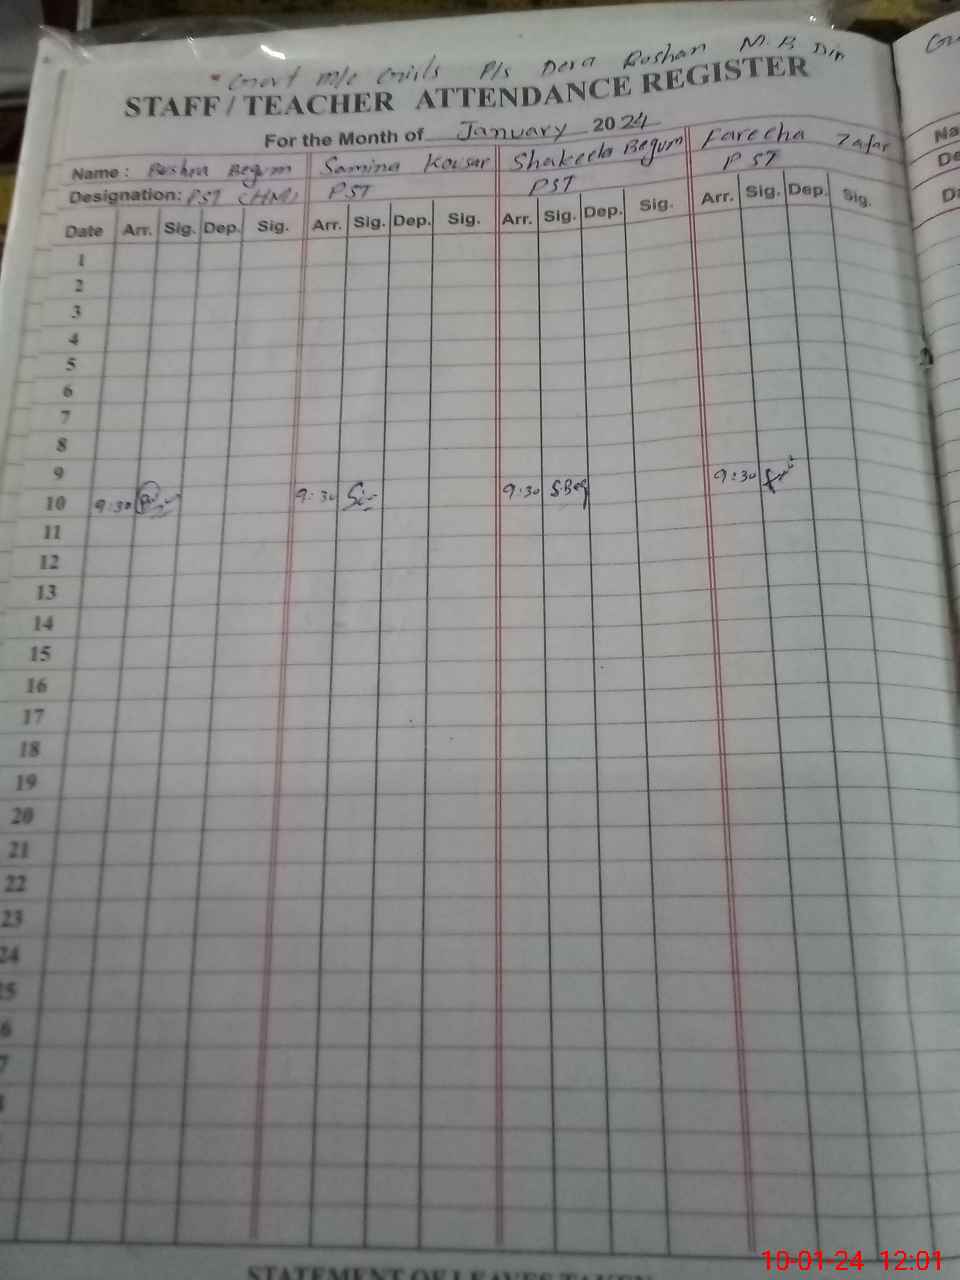 Govt M/C Girls P/s Dera Roshan M.B Din
STAFF / TEACHER ATTENDANCE REGISTER
For the Month of January 2024
Name : Bushra Begum Samina Kousar Shakeela Begum Fareeha Zafar
Designation: PST (HM) PST PST PST
Date Arr. Sig. Dep. Sig. Arr. Sig. Dep. Sig. Arr. Sig. Dep. Sig. Arr. Sig. Dep. Sig.
1
2
3
4
5
6
7
8
9
10 9:30 9:30 9:30 S.Beg 9:30
11
12
13
14
15
16
17
18
19
20
21
22
23
24
25
6
7
STATEMENT OF LEAVES TAKEN
Na
De
Da
10-01-24 12:01